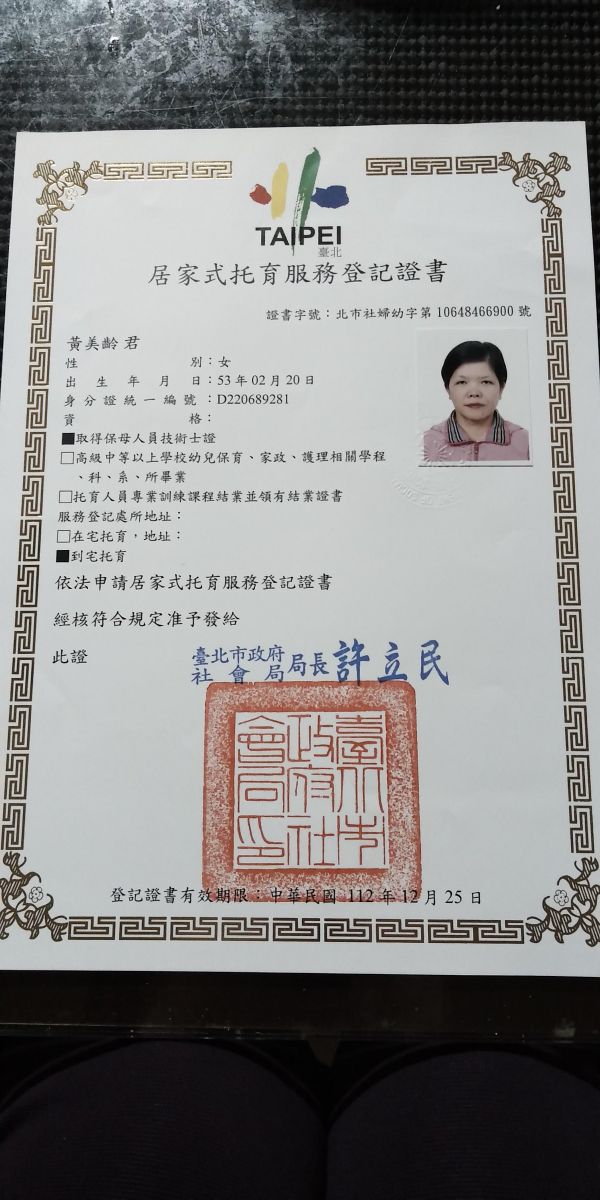 TAIPEI
臺北
居家式托育服務登記證書
證書字號：北市社婦幼字第 10648466900 號
黃美齡 君
性別：女
出生年月日：53 年 02 月 20 日
身分證統一編號：D220689281
資格：
■取得保母人員技術士證
□高級中等以上學校幼兒保育、家政、護理相關學程
、科、系、所畢業
□托育人員專業訓練課程結業並領有結業證書
服務登記處所地址：
□在宅托育，地址：
■到宅托育
依法申請居家式托育服務登記證書
經核符合規定准予發給
此證
臺北市政府
社會局局長許立民
臺北市
政府社
會局印
登記證書有效期限：中華民國 112 年 12 月 25 日